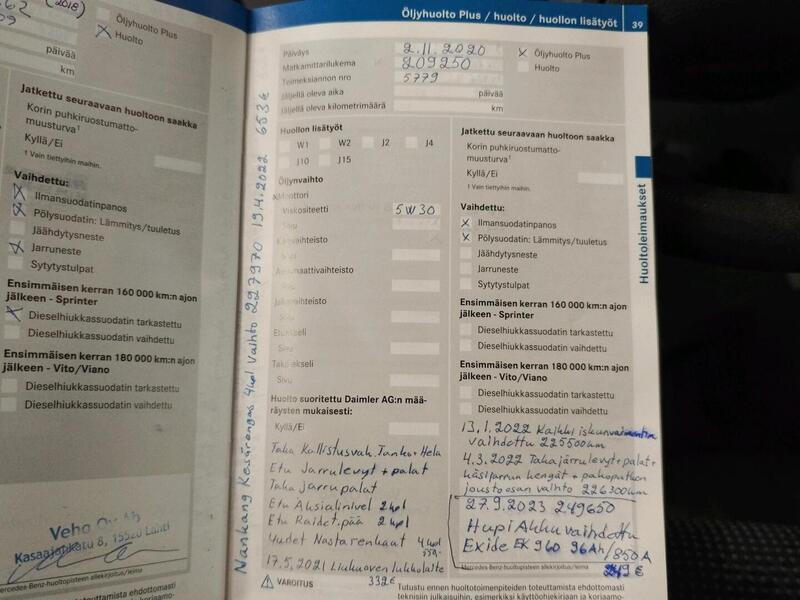 (2018)
Öljyhuolto Plus
Huolto
päivää
km
Jatkettu seuraavaan huoltoon saakka
Korin puhkiruostumatto-
muusturva¹
Kyllä/Ei
¹ Vain tiettyihin maihin.
Vaihdettu:
Ilmansuodatinpanos
Pölysuodatin: Lämmitys/tuuletus
Jäähdytysneste
Jarruneste
Sytytystulpat
Ensimmäisen kerran 160 000 km:n ajon
jälkeen - Sprinter
Dieselhiukkassuodatin tarkastettu
Dieselhiukkassuodatin vaihdettu
Ensimmäisen kerran 180 000 km:n ajon
jälkeen - Vito/Viano
Dieselhiukkassuodatin tarkastettu
Dieselhiukkassuodatin vaihdettu
Veho
Kasaajankatu 8, 15520 Lahti
Mercedes-Benz-huoltopisteen allekirjoitus/leima
Nankang Kesärengas 4kpl vaihto 227970 19.4.2022 653€
Öljyhuolto Plus / huolto / huollon lisätyöt 39
Päiväys 2.11.2020
Matkamittarilukema 209250
Toimeksiannon nro 5779
Jäljellä oleva aika päivää
Jäljellä oleva kilometrimäärä km
Öljyhuolto Plus
Huolto
Huollon lisätyöt
W1 W2 J2 J4
J10 J15
Öljynvaihto
Moottori
Viskositeetti 5W30
Sivu
Käsivaihteisto
Sivu
Automaattivaihteisto
Sivu
Jakovaihteisto
Sivu
Etuakseli
Sivu
Taka-akseli
Sivu
Huolto suoritettu Daimler AG:n mää-
räysten mukaisesti:
Kyllä/Ei
Taka Kallistusvak. Tanko + Hela
Etu Jarrulevyt + palat
Taka jarrupalat
Etu Aksialinivel 2kpl
Etu Raidet.pää 2kpl
Uudet Nastarenkaat 4kpl
17.5.2021 Liukuoven lukkolaite
332€
Jatkettu seuraavaan huoltoon saakka
Korin puhkiruostumatto-
muusturva¹
Kyllä/Ei
¹ Vain tiettyihin maihin.
Vaihdettu:
Ilmansuodatinpanos
Pölysuodatin: Lämmitys/tuuletus
Jäähdytysneste
Jarruneste
Sytytystulpat
Ensimmäisen kerran 160 000 km:n ajon
jälkeen - Sprinter
Dieselhiukkassuodatin tarkastettu
Dieselhiukkassuodatin vaihdettu
Ensimmäisen kerran 180 000 km:n ajon
jälkeen - Vito/Viano
Dieselhiukkassuodatin tarkastettu
Dieselhiukkassuodatin vaihdettu
13.1.2022 Kaikki iskunvaimentin
vaihdettu 225500km
4.3.2022 Takajarrulevyt + palat +
käsijarrun kengät + pakoputken
joustoosan vaihto 226300km
27.9.2023 249650
Hupi Akku vaihdettu
Exide EK960 96Ah/850A
249€
Mercedes-Benz-huoltopisteen allekirjoitus/leima
Huoltoleimaukset
VAROITUS
Tutustu ennen huoltotoimenpiteiden toteuttamista ehdottomasti
teknisiin julkaisuihin, esimerkiksi käyttöohjekirjaan ja korjaamo-